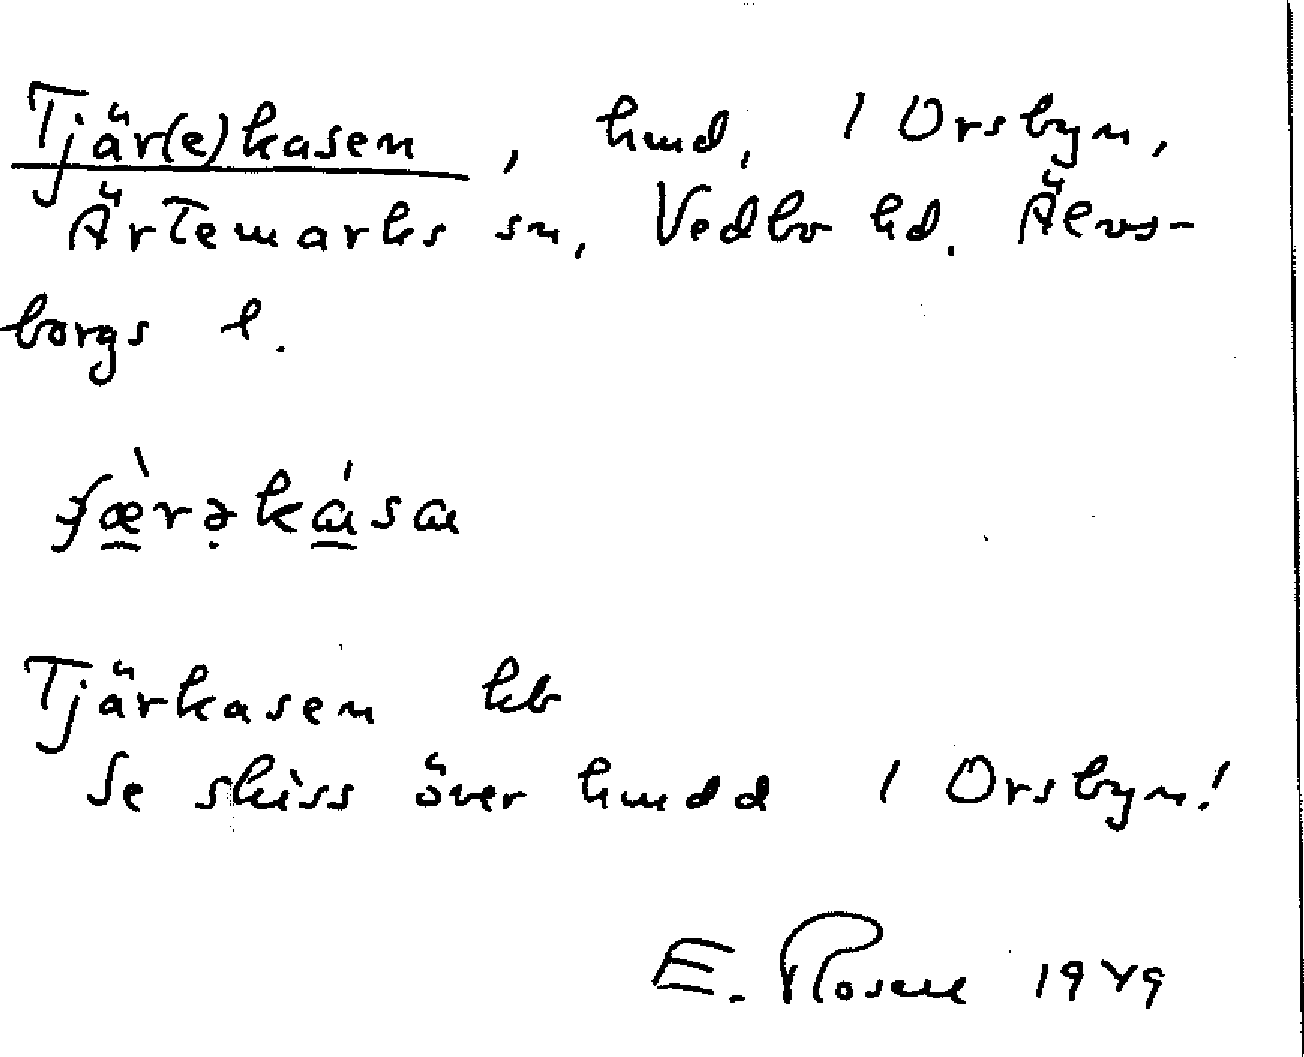 Tjär(e)kasen, hmd, i Orsbyn,
Ärtemarks sn, Vedbo hd. Älvs-
borgs l.
Tjärkasen kb
Se skiss över hmdd i Orsbyn!
E. Rosell 1949